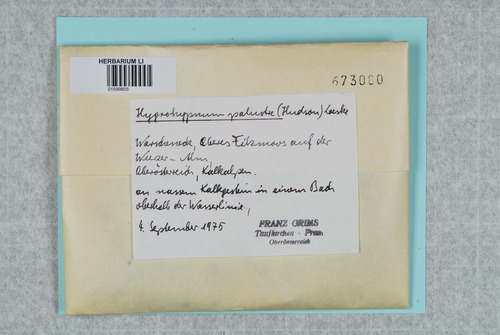 HERBARIUM LI
01599805
673080
Hygrohypnum palustre (Hudson) Loeske
Warscheneck, Oberes Filzmoos auf der
Wurzer-Alm,
Oberösterreich, Kalkalpen.
an nassem Kalkgestein in einem Bach
oberhalb der Wasserlinie,
4. September 1975
FRANZ GRIMS
Taufkirchen - Pram
Oberösterreich